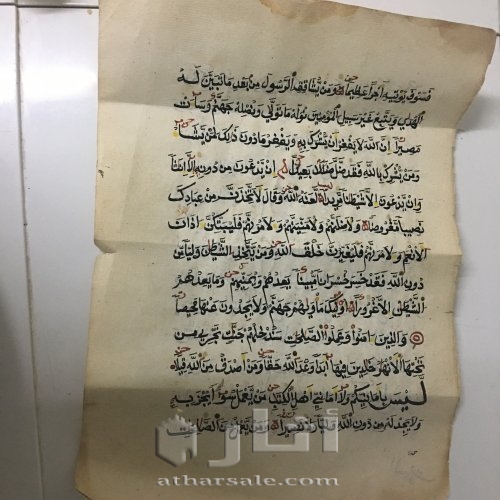 فسوف يؤتيه اجرا عظيما ومن يشاقق الرسول من بعد ما تبين له
الهدى ويتبع غير سبيل المؤمنين نوله ما تولى ونصله جهنم وساءت
مصيرا ان الله لا يغفر ان يشرك به ويغفر ما دون ذلك لمن يشاء
ومن يشرك بالله فقد ضل ضلالا بعيدا ان يدعون من دونه الا اناثا
وان يدعون الا شيطانا مريدا لعنه الله وقال لاتخذن من عبادك
نصيبا مفروضا ولاضلنهم ولامنينهم ولامرنهم فليبتكن اذان
الانعم ولامرنهم فليغيرن خلق الله ومن يتخذ الشيطن وليا من
دون الله فقد خسر خسرانا مبينا يعدهم ويمنيهم وما يعدهم
الشيطن الا غرورا اولئك ماويهم جهنم ولا يجدون عنها محيصا
والذين امنوا وعملوا الصلحت سندخلهم جنت تجري من
تحتها الانهر خلدين فيها ابدا وعد الله حقا ومن اصدق من الله قيلا
ليس بامانيكم ولا اماني اهل الكتب من يعمل سوءا يجز به
ولا يجد له من دون الله وليا ولا نصيرا ومن يعمل من الصلحت
آثار
atharsale.com